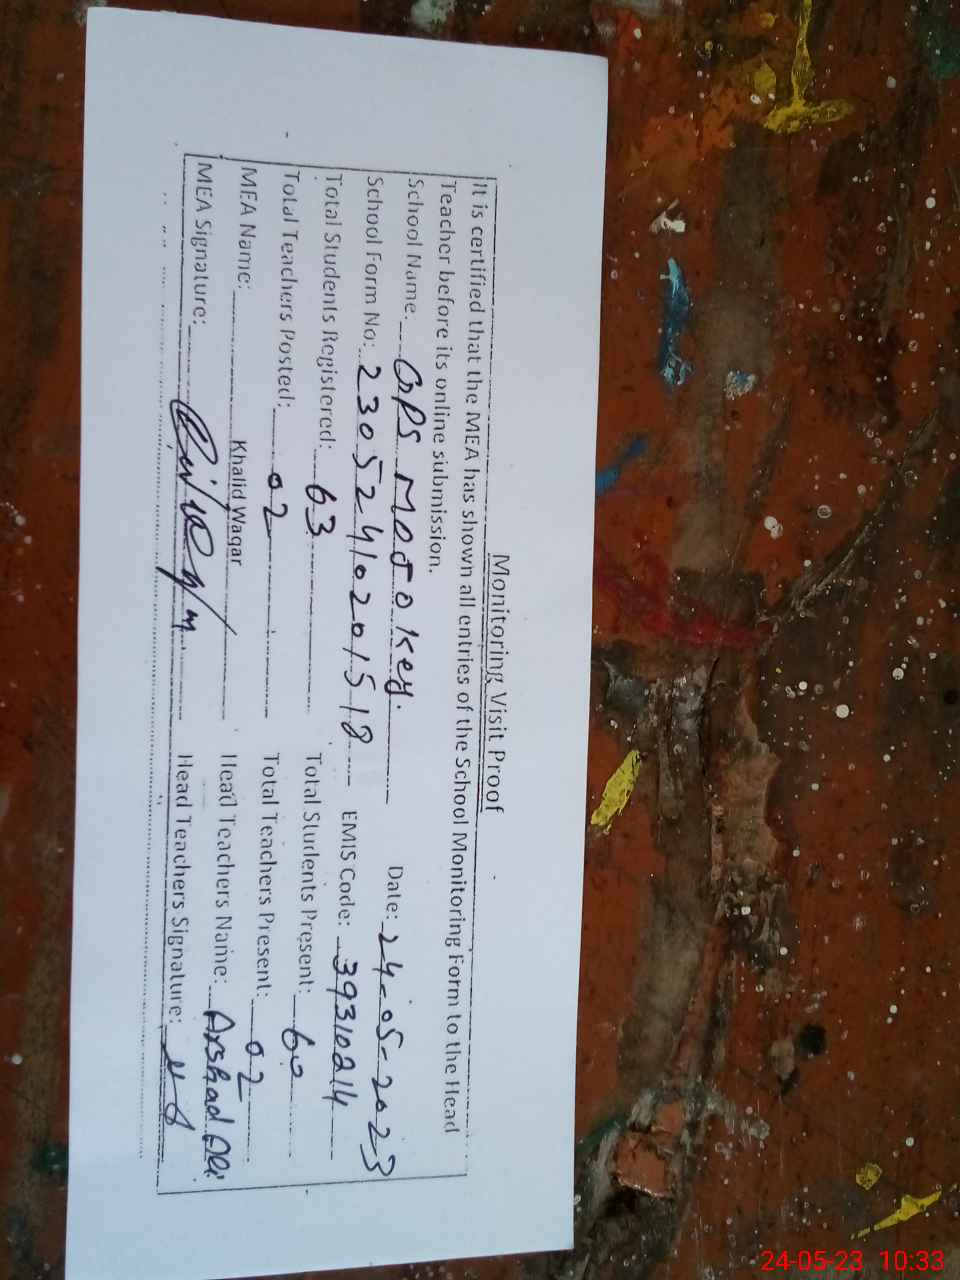 Monitoring Visit Proof
It is certified that the MEA has shown all entries of the School Monitoring Form to the Head
Teacher before its online submission.
School Name: GPS Masokey. Date: 24-05-2023
School Form No: 23052410201518 EMIS Code: 39310214
Total Students Registered: 63 Total Students Present: 60
Total Teachers Posted: 02 Total Teachers Present: 02
MEA Name: Khalid Waqar Head Teachers Name: Arshad Ali
MEA Signature: Head Teachers Signature:
24-05-23 10:33